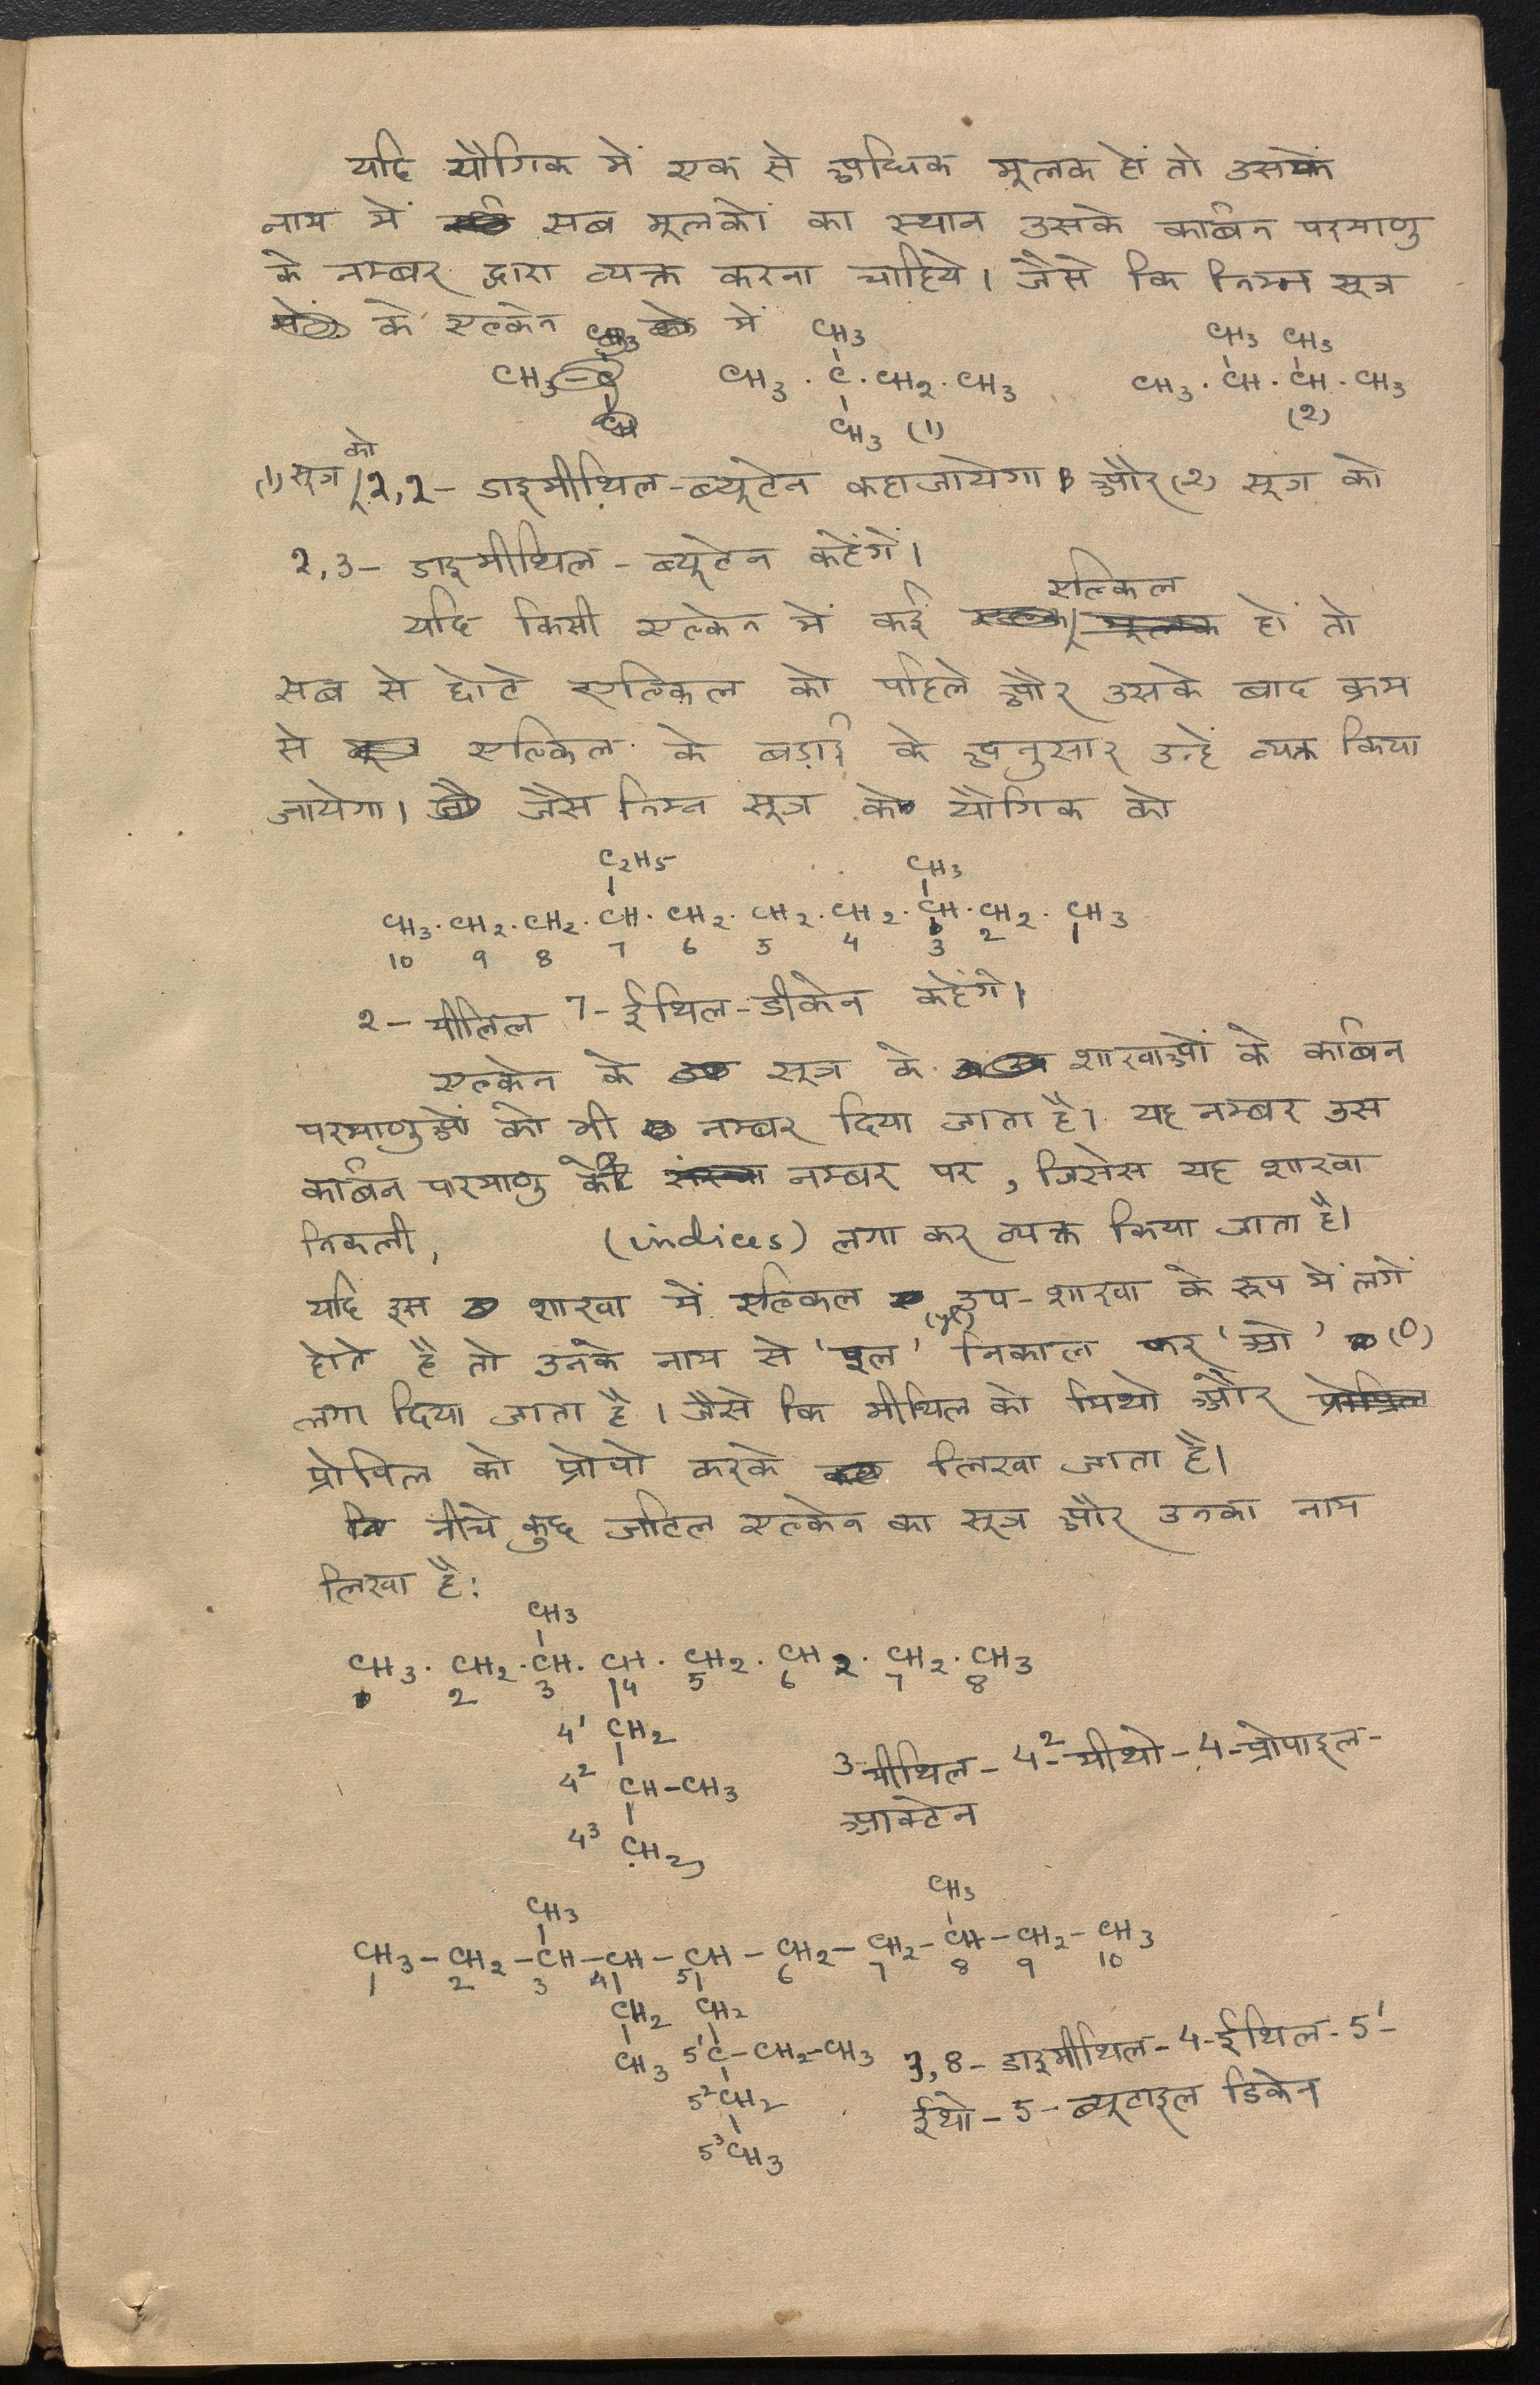 यदि यौगिक में एक से अधिक मूलक हों तो उसके
नाम में सब मूलकों का स्थान उसके कार्बन परमाणु
के नम्बर द्वारा व्यक्त करना चाहिये। जैसे कि निम्न सूत्र
के एल्केन में
CH3 CH3 CH3
CH3 CH3 · C · CH2 · CH3 CH3 · CH · CH · CH3
CH3 (1) (2)
(1) सूत्र को 2,2- डाइमीथिल-ब्यूटेन कहा जायेगा और (2) सूत्र को
2,3- डाइमीथिल - ब्यूटेन कहेंगें।
एल्किल
यदि किसी एल्केन में कई मूलक हों तो
सब से छोटे एल्किल को पहिले और उसके बाद क्रम
से एल्किल के बड़ाई के अनुसार उन्हें व्यक्त किया
जायेगा। जैसे निम्न सूत्र के यौगिक को
C2H5 CH3
CH3 · CH2 · CH2 · CH · CH2 · CH2 · CH2 · CH · CH2 · CH3
10 9 8 7 6 5 4 3 2 1
2- मीलिल 7- ईथिल-डीकेन कहेंगे।
एल्केन के सूत्र के शाखाओं के कार्बन
परमाणुओं को भी नम्बर दिया जाता है। यह नम्बर उस
कार्बन परमाणु के नम्बर पर, जिसेस यह शाखा
निकली, (indices) लगा कर व्यक्त किया जाता है।
यदि इस शाखा में एल्किल उप-शाखा के रूप में लगें
होते है तो उनके नाम से 'इल' (yl) निकाल कर 'ओ' (o)
लगा दिया जाता है। जैसे कि मीथिल को मिथो और प्रोपिल
प्रोपिल को प्रोपो करके लिखा जाता है।
नीचे कुछ जटिल एल्केन का सूत्र और उनका नाम
लिखा है:
CH3
CH3 · CH2 · CH · CH · CH2 · CH2 · CH2 · CH3
1 2 3 4 5 6 7 8
4¹ CH2
4² CH-CH3
4³ CH2
3 मीथिल- 4²-मीथो-4-प्रोपाइल-
आक्टेन
CH3 CH3
CH3-CH2-CH-CH-CH-CH2-CH2-CH-CH2-CH3
1 2 3 4 5 6 7 8 9 10
CH2 CH2
CH3 5¹C-CH2-CH3
5²CH2
5³CH3
3,8- डाइमीथिल-4-ईथिल-5¹-
ईथो-5-ब्यूटाइल डिकेन